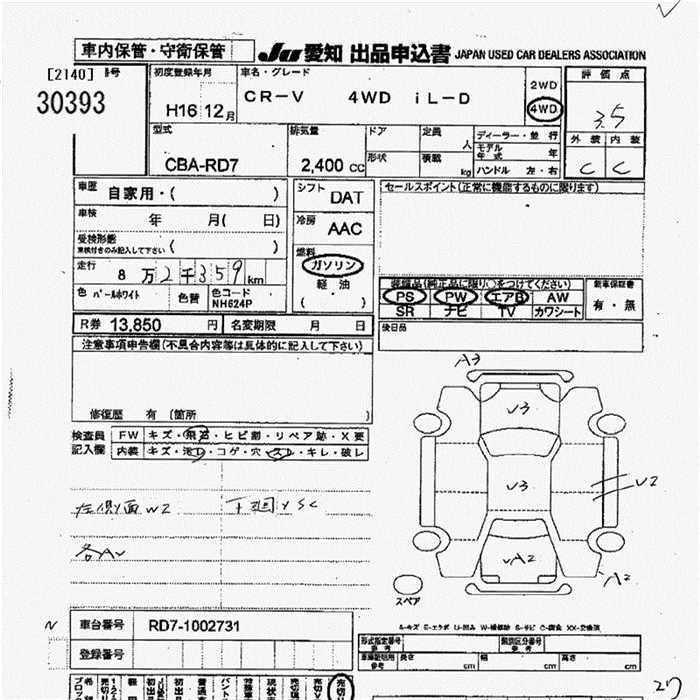 車内保管・守衛保管
JU 愛知 出品申込書 JAPAN USED CAR DEALERS ASSOCIATION
[2140] 番号
30393
初度登録年月
H16 12月
車名・グレード
CR-V 4WD iL-D
2WD
4WD
評価点
3.5
外装 内装
C C
型式
CBA-RD7
排気量
2,400 cc
ドア
形状
定員 人
積載 kg
ディーラー・並行
モデル年式 年
ハンドル 左・右
車歴 自家用・( )
車検 年 月( 日)
受検形態
車検付きのみ記入して下さい ( )
走行 8万2千359km
色 パールホワイト 色替 色コード NH624P
シフト DAT
冷房 AAC
燃料
ガソリン
軽油
( )
セールスポイント(正常に機能するものに限ります)
装備品(純正品に限り○をつけてください)
PS PW エアB AW
SR ナビ TV カワシート
新車保証書
有・無
後日品
R券 13,850 円 名変期限 月 日
注意事項申告欄(不具合内容等は具体的に記入して下さい)
修復歴 有 (箇所 )
検査員記入欄
FW キズ・飛石・ヒビ割・リペア跡・X要
内装 キズ・汚レ・コゲ・穴・スレ・キレ・破レ
左側面W2 下回りSC
各AU
A3
U3
U3
U2
UA2
A2
スペア
車台番号 RD7-1002731
登録番号
A-キズ E-エクボ U-凹み W-補修跡 S-サビ C-腐食 XX-交換済
形式指定番号 参考
類別区分番号 参考
車庫証明用 参考 長さ cm 幅 cm 高さ cm
27